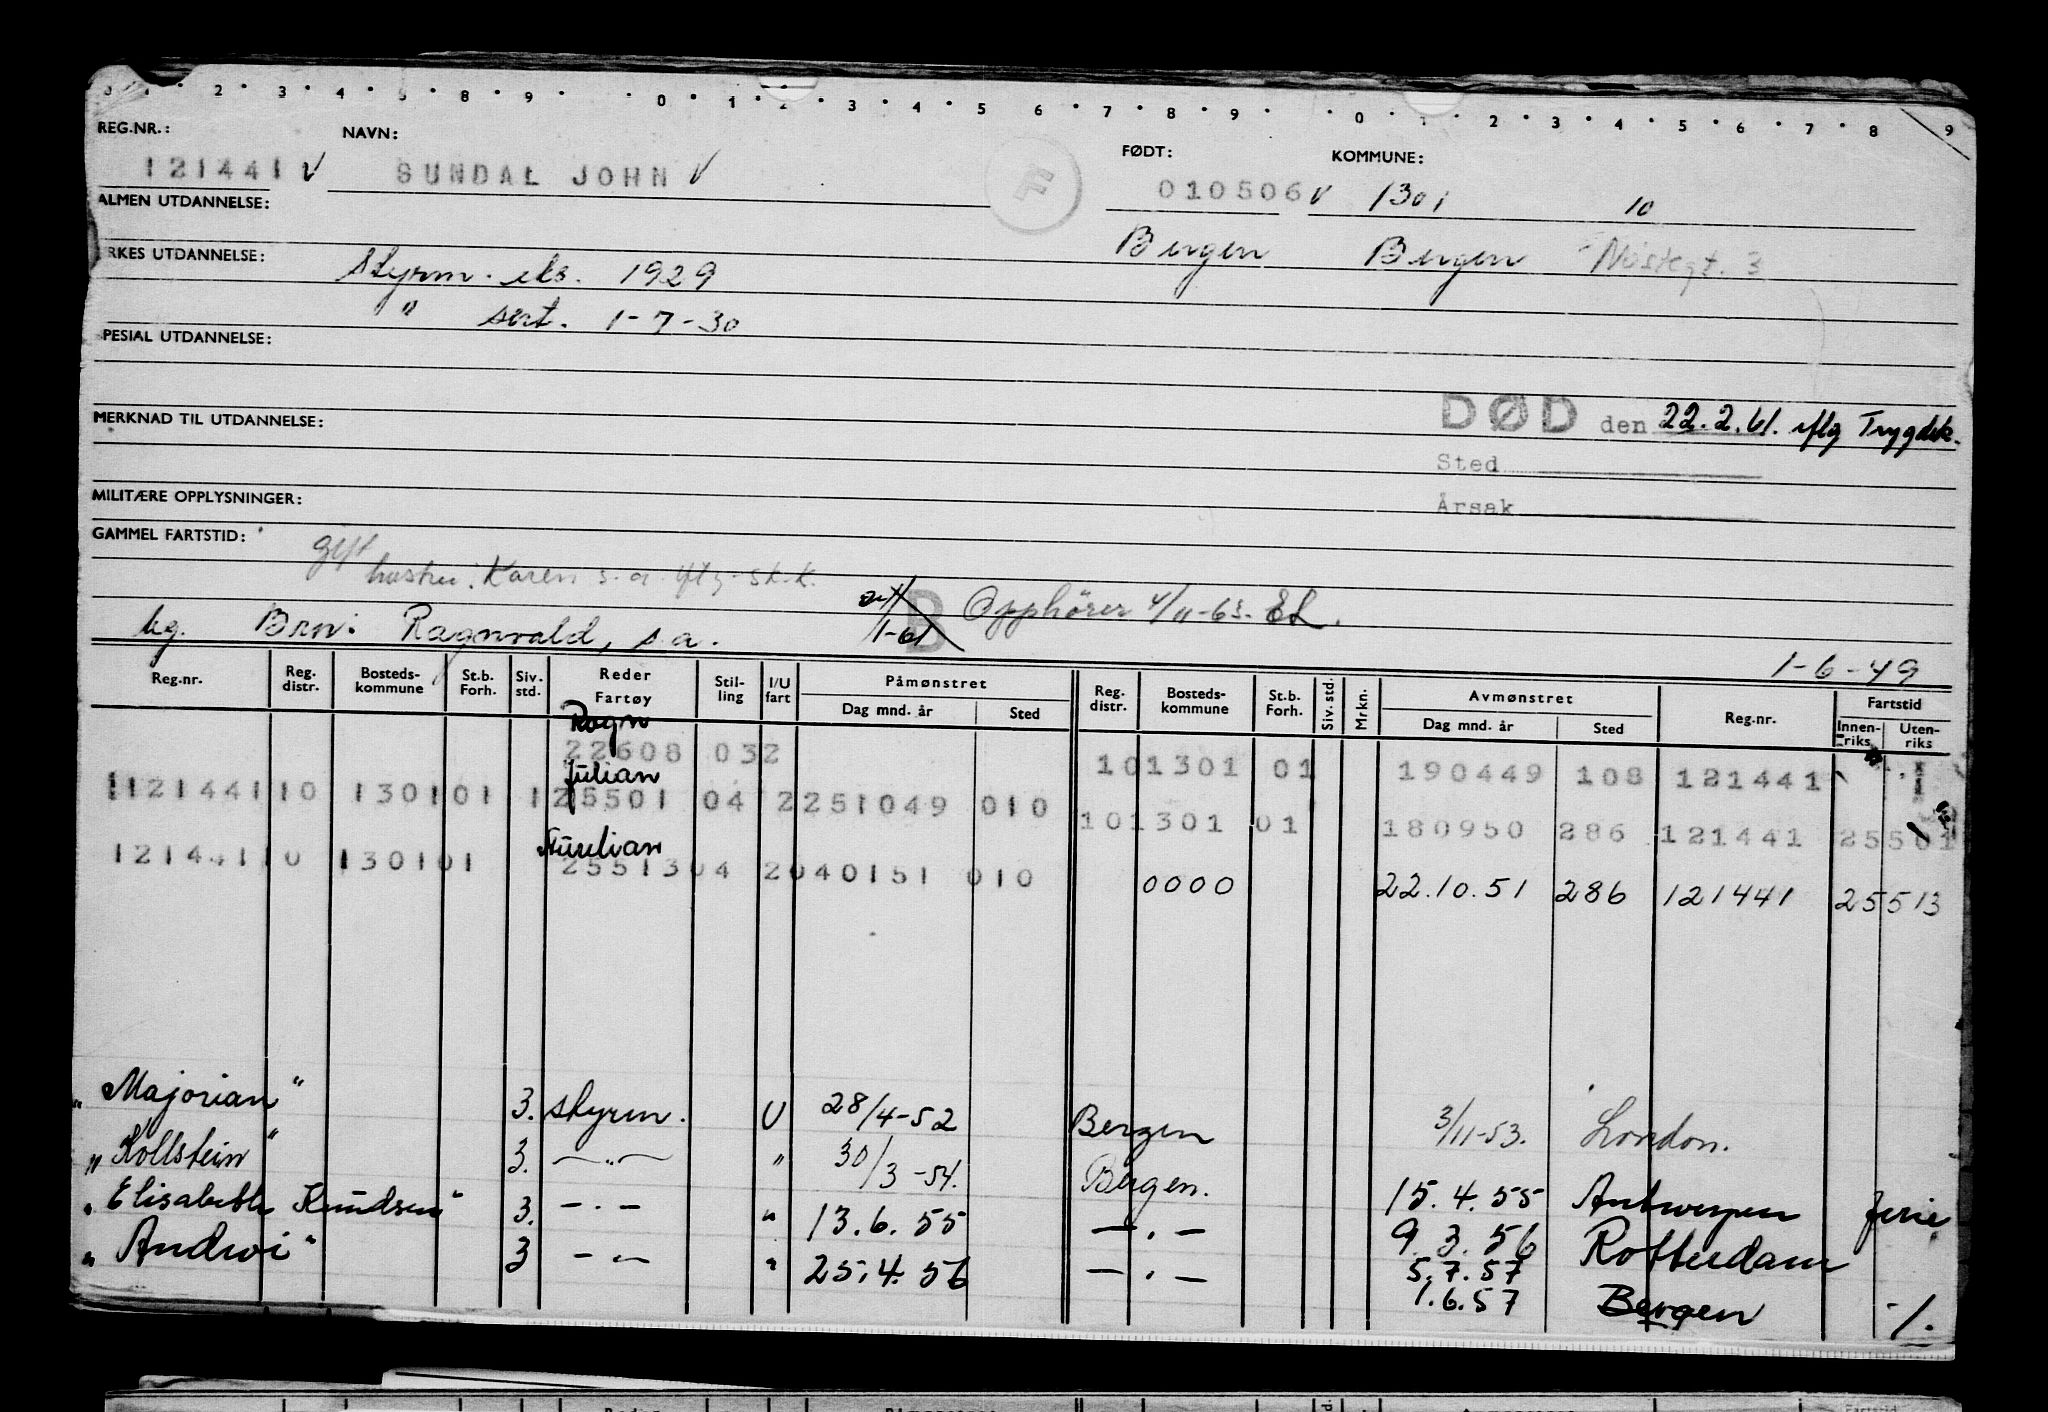 0 1 2 3 4 5 8 9 0 1 2 3 4 5 6 7 8 9 0 1 2 3 4 5 6 7 8 9
REG.NR.: NAVN: FØDT: KOMMUNE:
121441 V SUNDAL JOHN V F 010506 V 1301 10
ALMEN UTDANNELSE:
Bergen Bergen Nøstegt. 3
RKES UTDANNELSE: Styrm. eks. 1929
" sert. 1-7-30
PESIAL UTDANNELSE:
MERKNAD TIL UTDANNELSE: DØD den 22.2.61. iflg Trygdek.
Sted
MILITÆRE OPPLYSNINGER: Årsak
GAMMEL FARTSTID: gift
hustru: Karen s.a. iflg. sk.k.
B Opphører 4/11-63. EL.
bg. Bror: Ragnvald, s.a. 1-61
1-6-49
Reg.nr. Reg. distr. Bosteds-kommune St.b. Forh. Siv. std. Reder Fartøy Stil-ling I/U fart Påmønstret Dag mnd. år Sted Reg. distr. Bosteds-kommune St.b. Forh. Siv. std. Mrkn. Avmønstret Dag mnd. år Sted Reg.nr. Fartstid Innen-riks Uten-riks
Ragn
22608 032 101301 01 190449 108 121441
Julian
112144110 130101 125501 04 2251049 010 101301 01 180950 286 121441 25501
12144110 130101 2551304 2040151 010 0000 22.10.51 286 121441 25513
" Majorian " 3. styrm. U 28/4-52 Bergen 3/11-53. London.
" Kollstein " 3. — " — " 30/3-54. Bergen. 15.4.55 Antwerpen ferie
" Elisabeth Knudsen " 3. — . — " 13.6.55 — . — 9.3.56 Rotterdam "
" Andwi " 3 — " — " 25.4.56 — . — 5.7.57
1.6.57 Bergen -/.